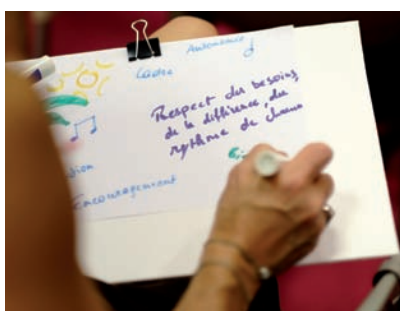 Cadre Autonomie
Respect des besoins,
de la différence, du
rythme de chacun
tion
Encouragement